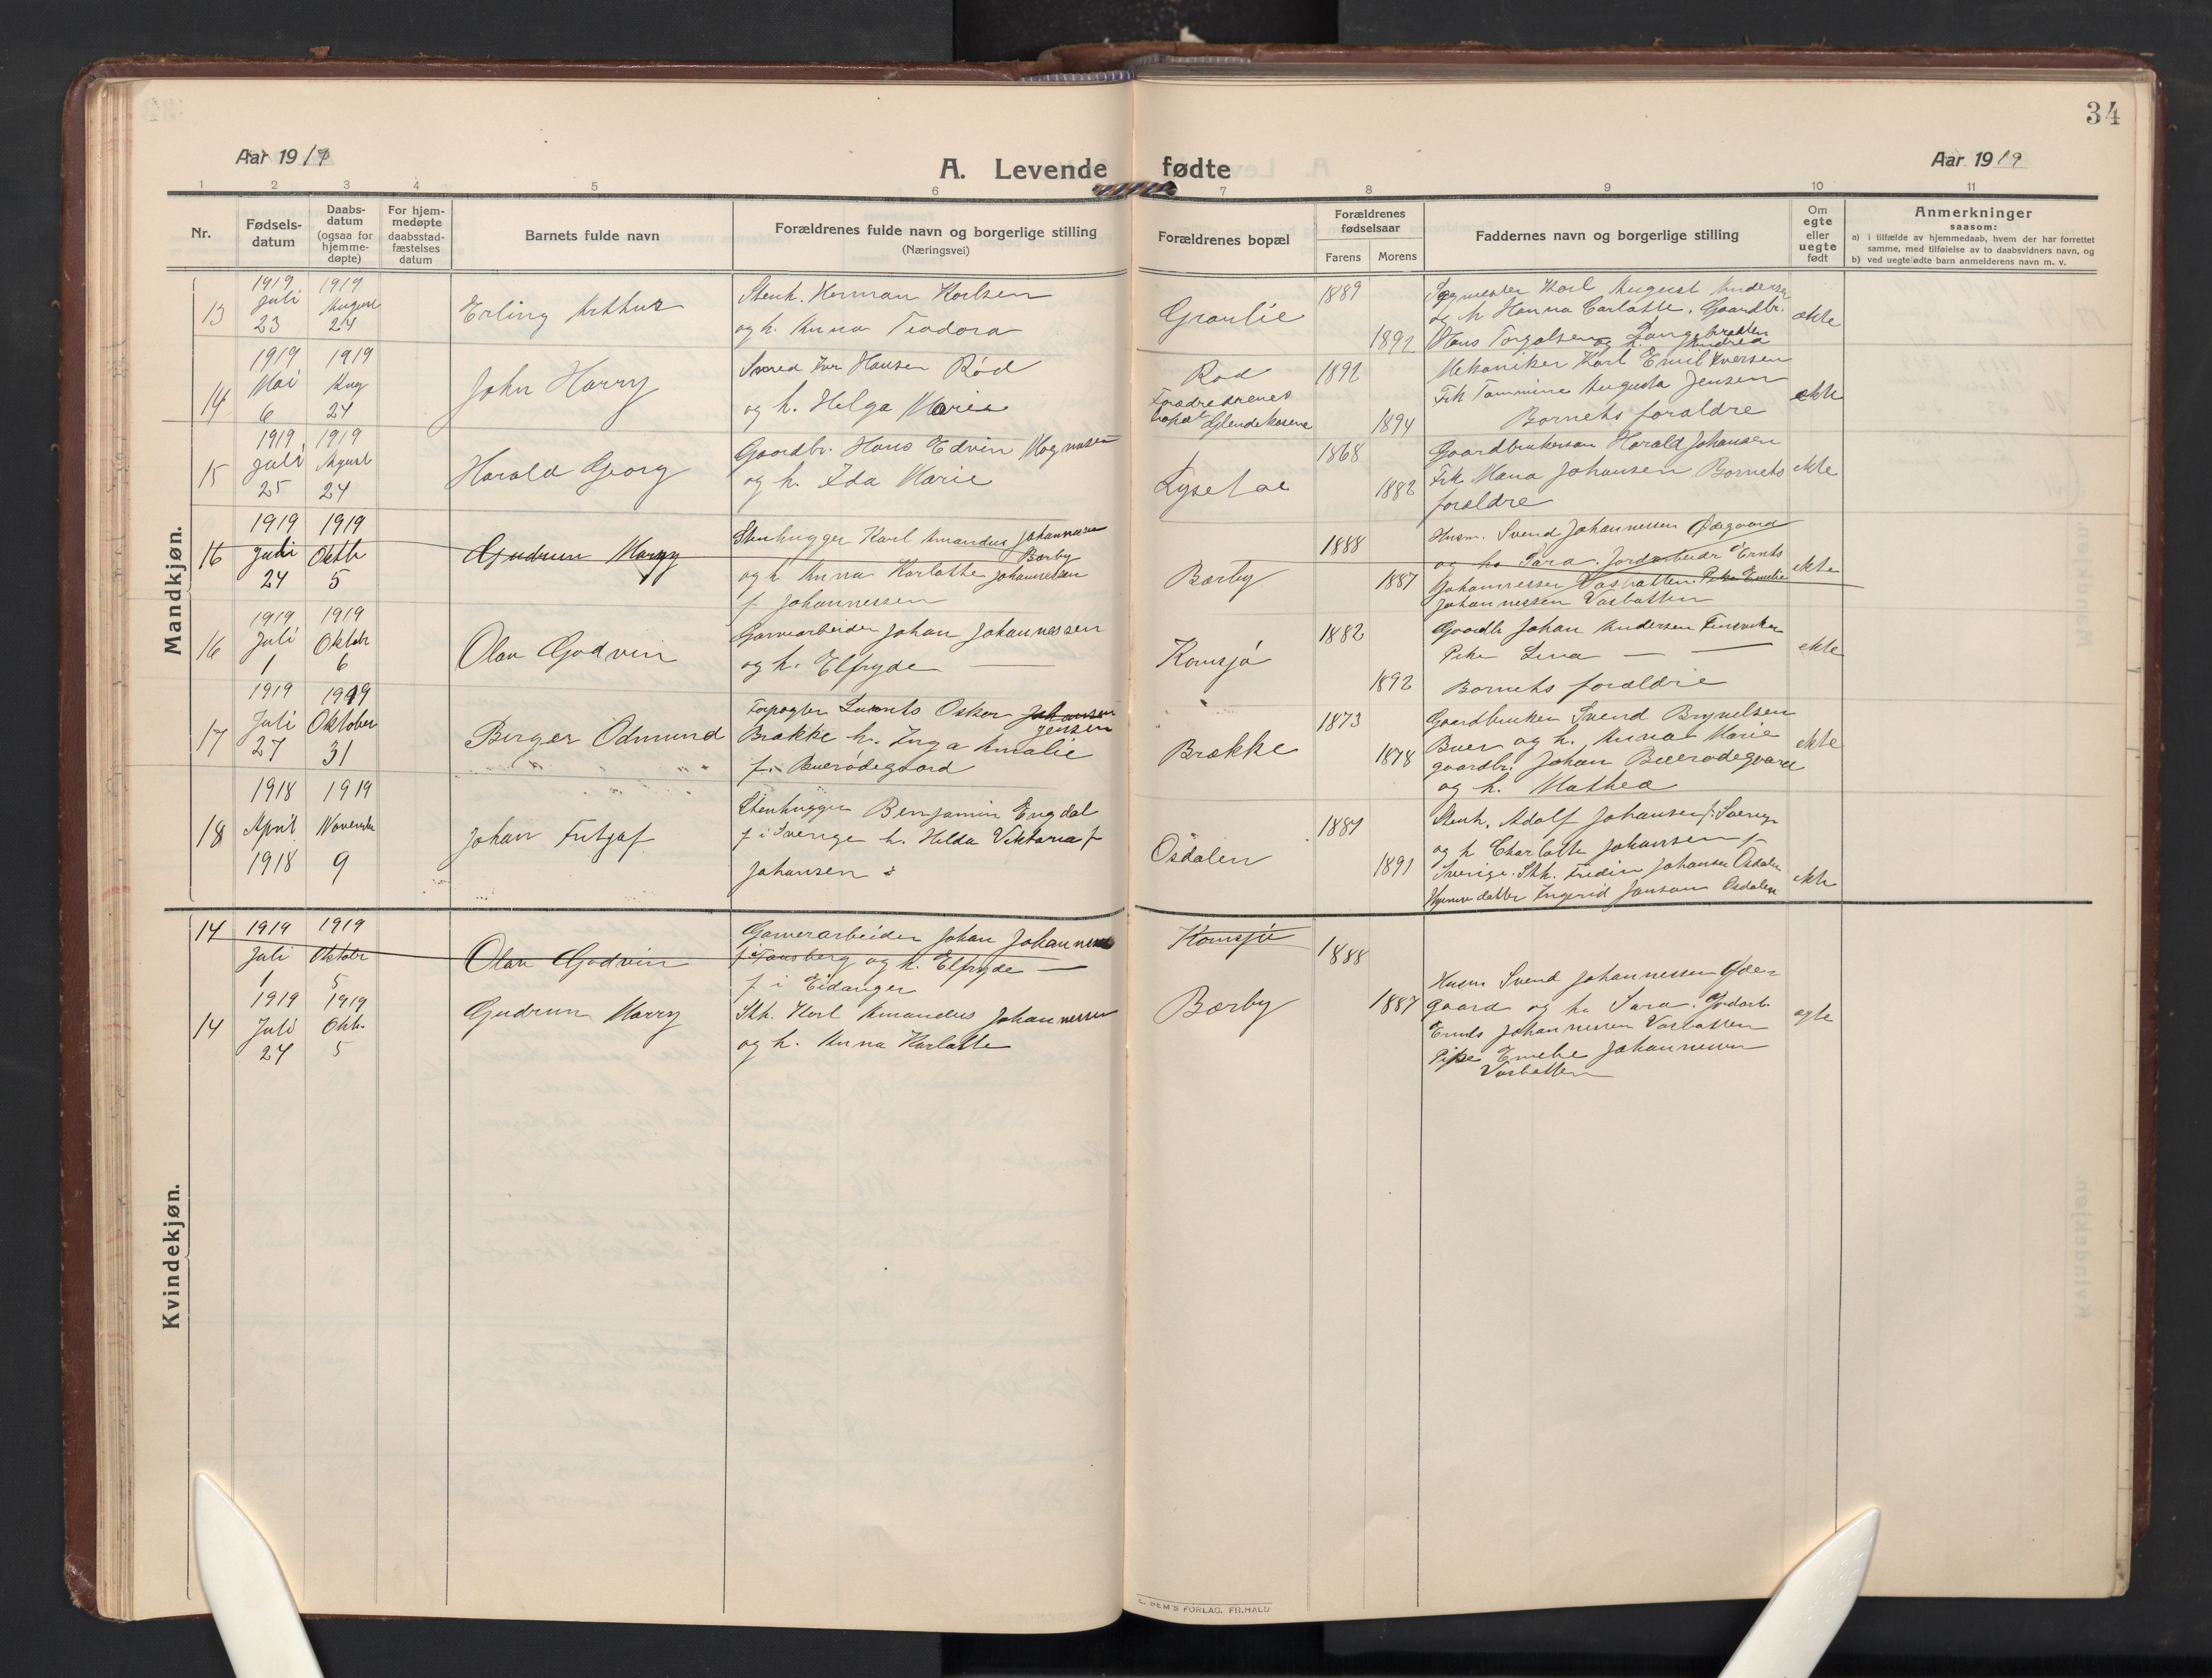 34
Aar 1919
A. Levende fødte
Aar 1919
1 2 3 4 5 6 7 8 9 10 11
Nr.
Fødsels-
datum
Daabs-
datum
(ogsaa for
hjemme-
døpte)
For hjem-
medøpte
daabsstad-
fæstelses
datum
Barnets fulde navn
Forældrenes fulde navn og borgerlige stilling
(Næringsvei)
Forældrenes bopæl
Forældrenes
fødselsaar
Farens Morens
Faddernes navn og borgerlige stilling
Om
egte
eller
uegte
født
Anmerkninger
saasom:
a) i tilfælde av hjemmedaab, hvem der har forrettet
samme, med tilføielse av to daabsvidners navn, og
b) ved uegte fødte barn anmelderens navn m. v.
Mandkjøn.
13
1919
Juli
23
1919
August
24
Erling Arthur
Stenh. Herman Karlsen
og h. Anna Teodora
Graulie
1889
1892
Karl August Anders
og h Hanna Carlotte. Gaardbr.
Hans Torgalsen Langebratten
og h. Andrea
ekte
14
1919
Mai
6
1919
Aug
24
John Harry
Ivar Hansen Rød
og h. Helga Marie
Rød
Foreldrenes
bopæl Glendekasene
1892
1894
Mekaniker Karl Emil Iversen
Frk Tammine Augusta Jensen
Barnets foraldre
ekte
15
1919
Juli
25
1919
August
24
Harald Georg
Gaardbr. Hans Edvin Magnusen
og h. Ida Marie
Lysetoe
1868
1882
Gaardbrukersøn Harald Johansen
Frk. Mana Johansen Barnets
foraldre
ekte
16
1919
Juli
24
1919
Oktb
5
Gudrun Marry
Stenhugger Karl Amandus Johannesen
Bærby
og h Anna Karlotte Johannessen
f Johannessen
Bærby
1888
1887
Husm. Svend Johannessen Ødegaard
og ha Sara. Jordarbeidr Ernts
Johannessen Vasbatten. Pike Emelie
Johannessen Vasbatten
ekte
16
1919
Juli
1
1919
Oktobr
6
Olav Godvin
Garverarbeider Johan Johannessen
og h. Elfryde —
Komsjø
1882
1892
Gaardb Johan Andersen
Pike Lina — —
Barnets foraldre
ekte
17
1919
Juli
27
1919
Oktober
31
Birger Odmund
Forpagter Laurits Oskar Johansen
Jensen
Brække h. Inga Amalie
f. Buerødegaard
Brække
1873
1878
Gaardbruker Svend Brynelsen
Buer og h. Anna Marie
gaardbr. Johan Buerødegaard
og h. Mathea
ekte
18
1918
April
1918
1919
November
9
Johan Fritjof
Stenhugger Benjamin Engdal
f i Sverige h. Hilda Viktoria f
Johansen
Osdalen
1881
1891
Stenh. Adolf Johansen f. Sverig
og h Charlotte Johansen f
Sverige. Sth. Fridin Johansen Osdalen
datter Ingrid Janson Osdalen
ekte
Kvindekjøn.
14
1919
Juli
1
1919
Oktobr
5
Olav Godvin
Garverarbeider Johan Johannesen
f i Tønsberg og h. Elfryde —
f i Eidanger
Komsjø
1888
14
1919
Juli
24
1919
Oktb.
5
Gudrun Marry
Sth. Karl Amandus Johannessen
og h. Anna Karlotte
Bærby
1887
Husm Svend Johannessen Øde-
gaard og h. Sara. Jordarb.
Ernts Johannessen Vasbatten
Pike Emelie Johannessen
Vasbatten
egte
E. SEM'S FORLAG, FR.HALD